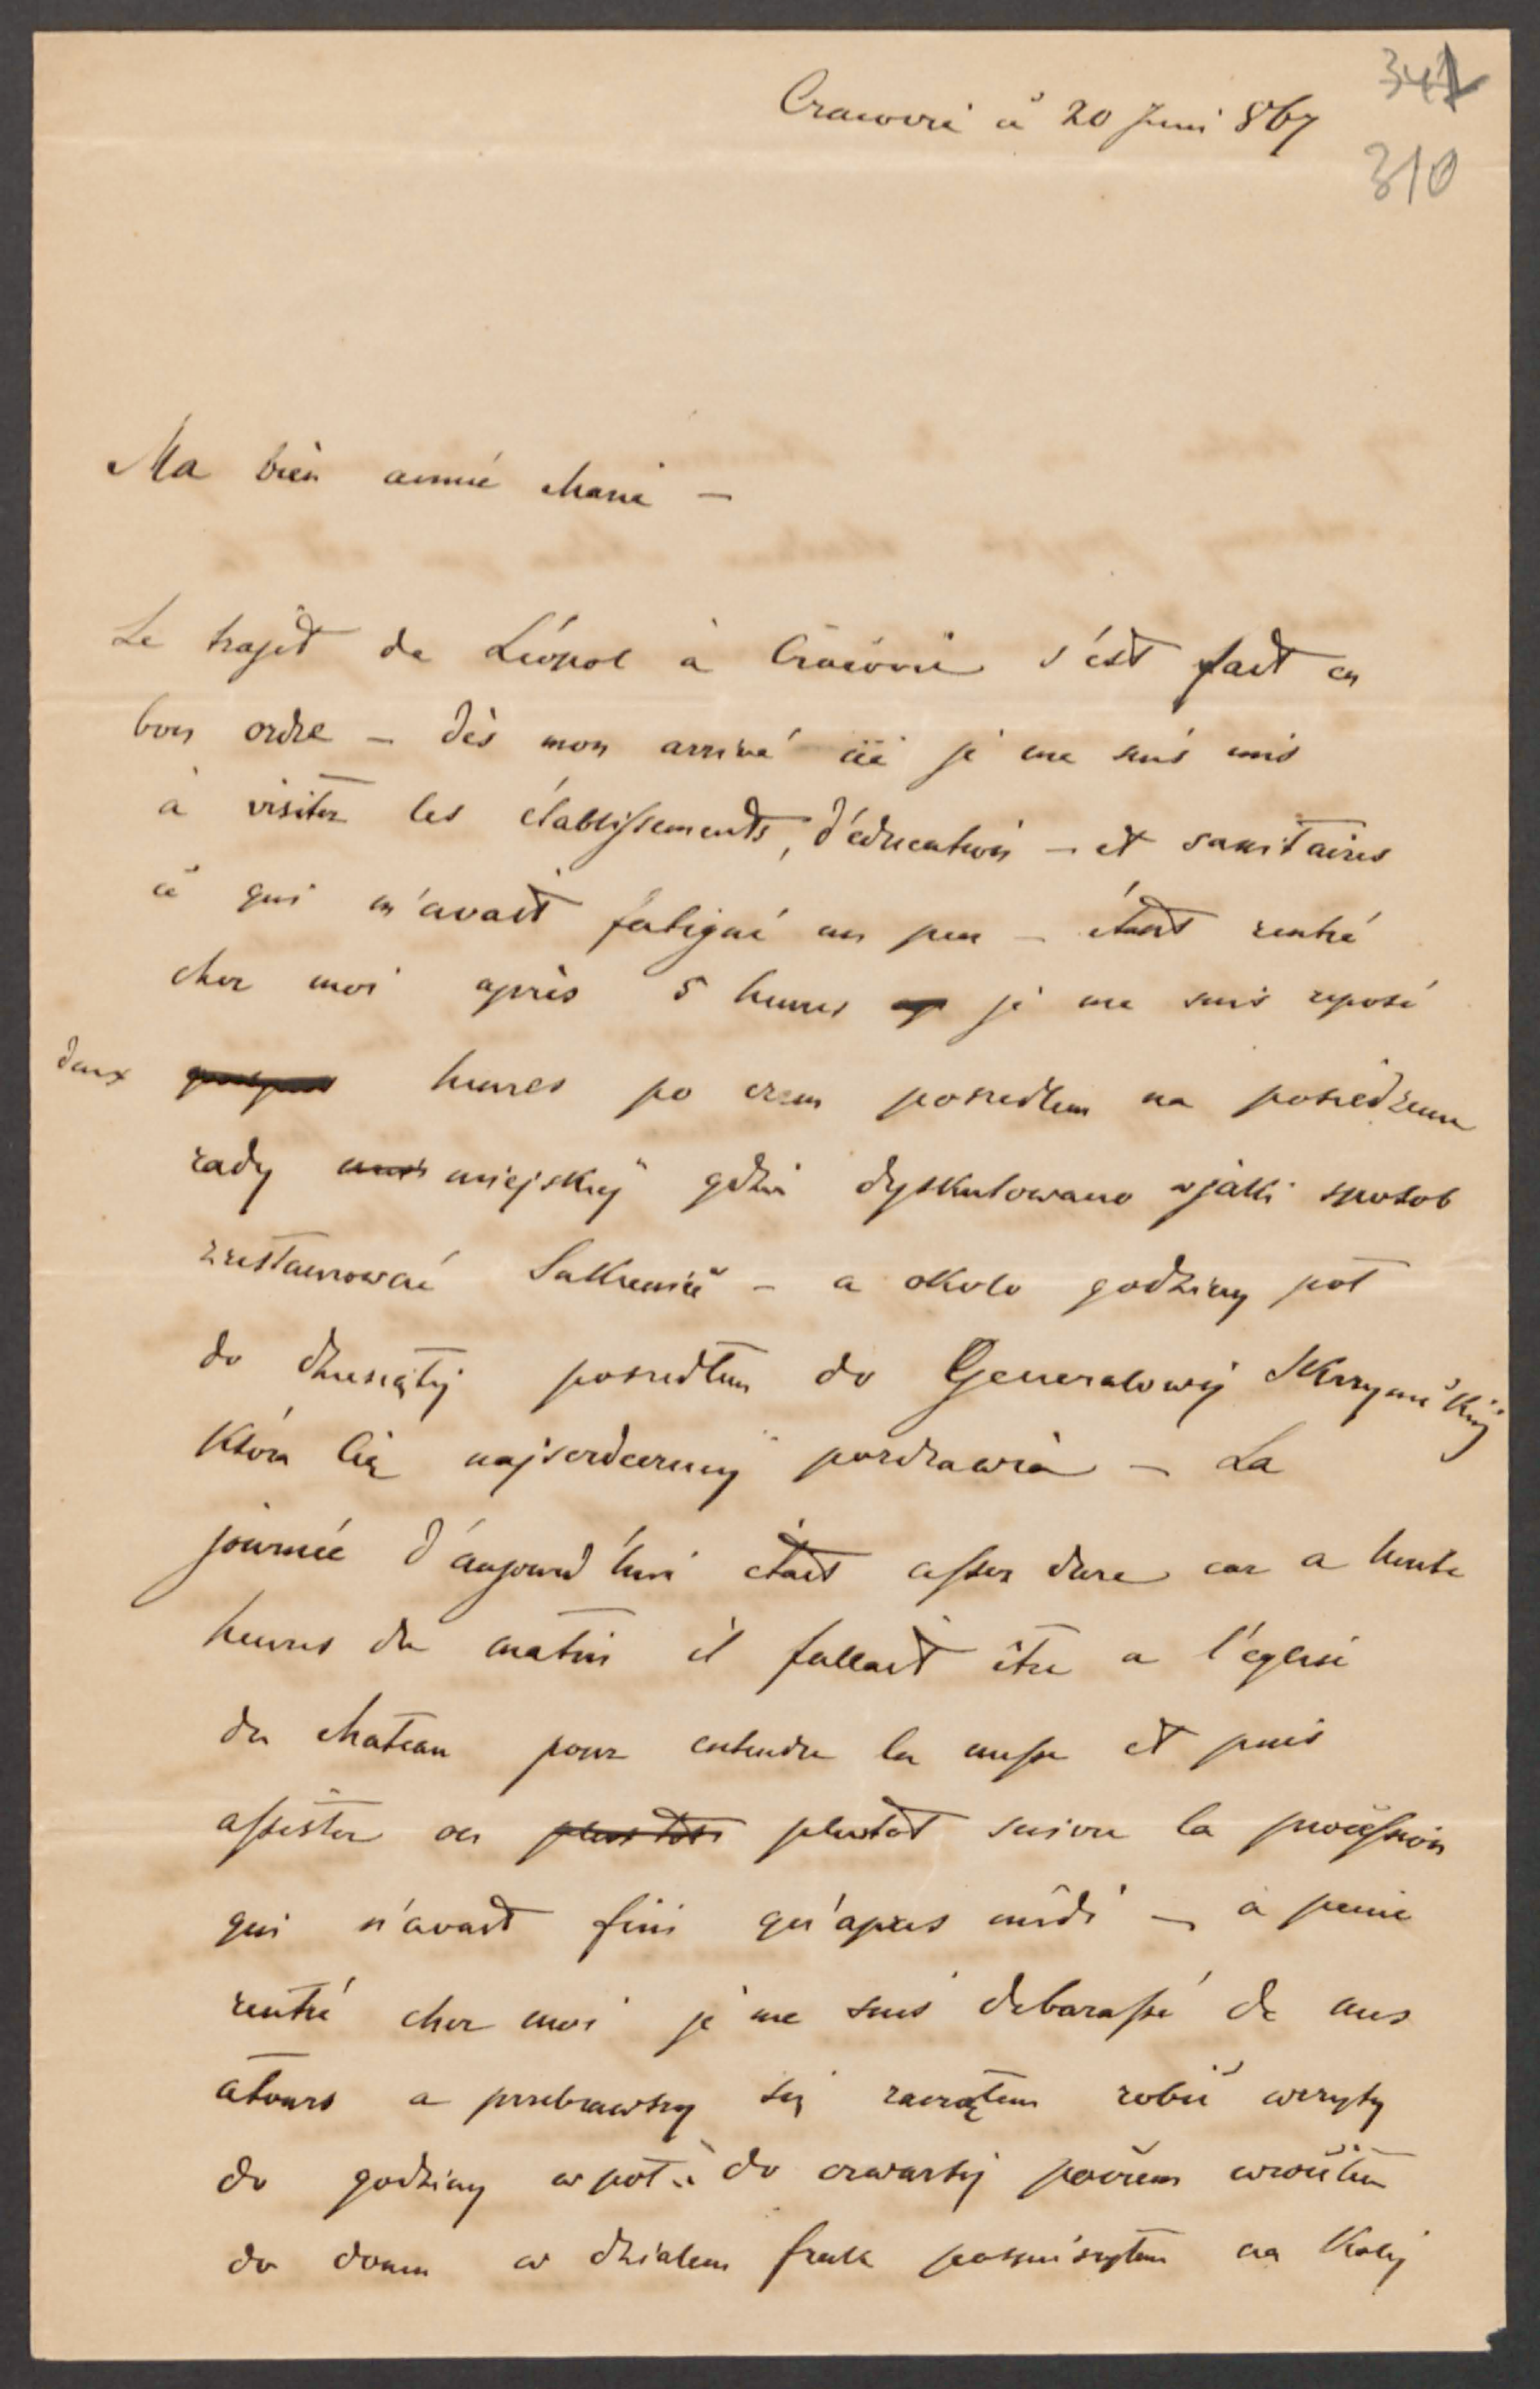 341
Cracovie ce 20 Juni 867
310
Ma bièn aimée Marie –
Le trajet de Léopol à Cracovie s'ést fait en
bon ordre – dès mon arrivé ici je me suis mis
à visiter les établissements, d'éducation – et sanitaires
ce qui m'avait fatigué un peu – étant rentré
chez moi après 5 heures je me suis reposé
deux heures po czem poszedłem na posiedzenie
rady miejskiej gdzie dyskutowano w jaki sposob
zrestaurować Sukienice – a około godziny pół
do dziesiątej poszedłem do Generalowej Skrzyneckiej
która Cię najserdeczniej pozdrawia – La
journée d'áujourd'hui était assez dure car a huite
heures du matin il fallait être a l'églisé
du chateau pour entendre la messe et puis
assister ou plustot suivre la procession
qui n'avait fini qu'apres midi – à peine
rentré chez moi je me suis debarassé de mes
atours a przebrawszy się zacząłem robić wizyty
do godziny w pół do czwartej poczem wróciłem
do domu wdziałem frak pospieszyłem na Kolej